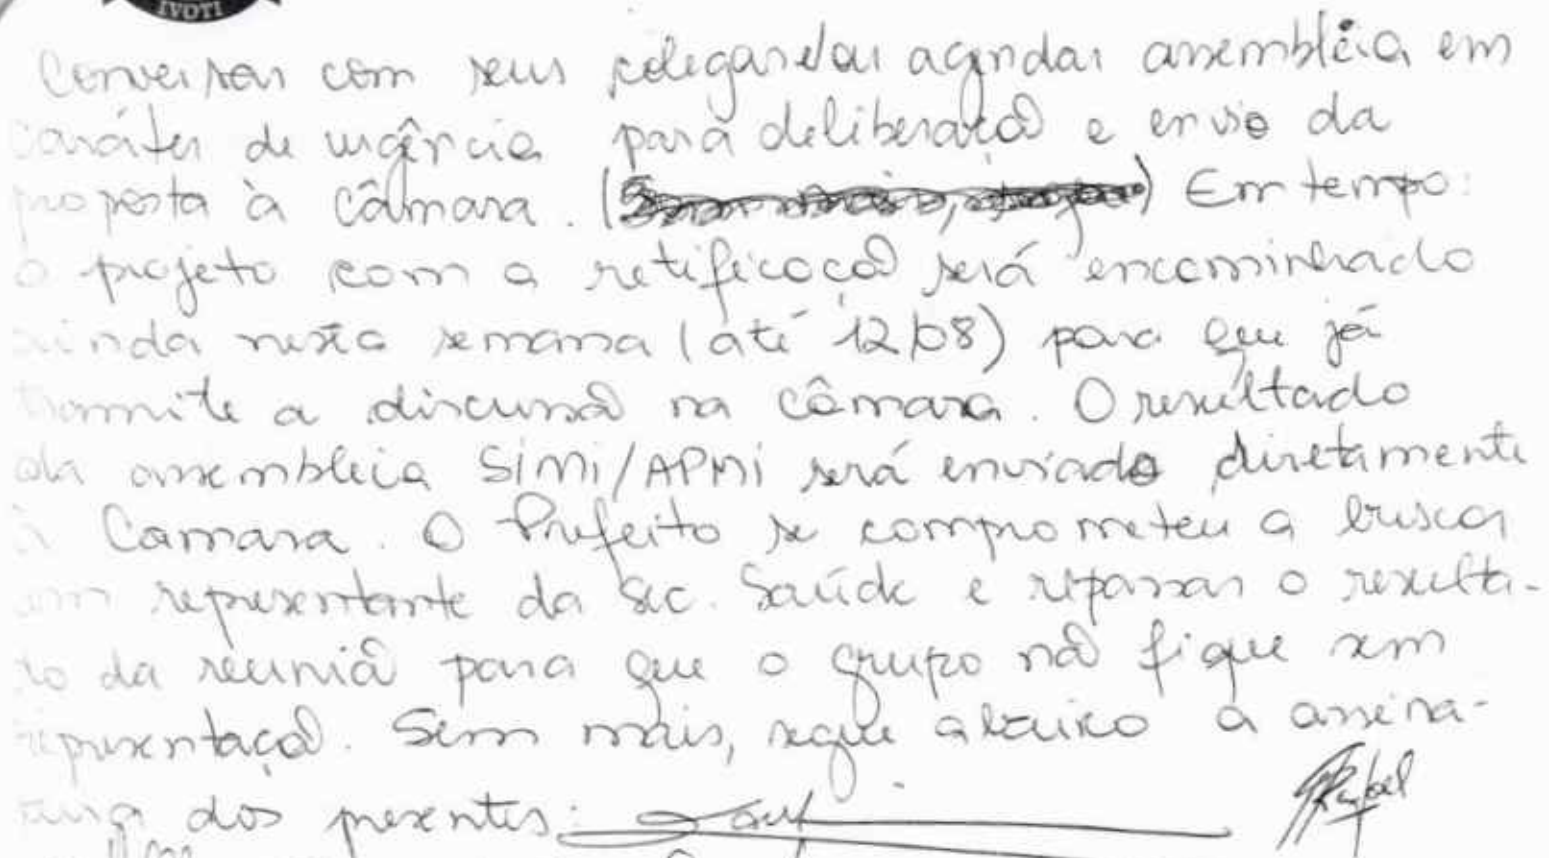 IVOTI
Conversar com seus colegas e/ou agendar assembléia em
caráter de urgência para deliberação e envio da
proposta à câmara. ( ) Em tempo:
o projeto com a retificação será encaminhado
ainda nesta semana (até 12/08) para que já
tramite a discussão na câmara. O resultado
da assembleia SIMI/APMI será enviado diretamente
à Camara. O Prefeito se comprometeu a buscar
um representante da Sec. Saúde e repassar o resulta-
do da reunião para que o grupo não fique sem
representação. Sem mais, segue abaixo a assina-
tura dos presentes: